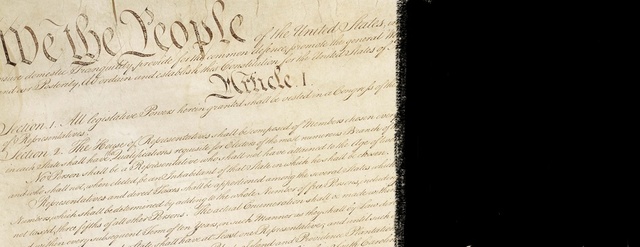 We the People of the United States,
insure domestic Tranquility, provide for the common defence, promote the general
and our Posterity, do ordain and establish this Constitution for the United States of
Article I.
Section 1. All legislative Powers herein granted shall be vested in a Congress of the
of Representatives.
Section 2. The House of Representatives shall be composed of Members chosen every
in each State shall have Qualifications requisite for Electors of the most numerous Branch of
No Person shall be a Representative who shall not have attained to the Age of twenty
and who shall not, when elected, be an Inhabitant of that State in which he shall be chosen
Representatives and direct Taxes shall be apportioned among the several States which
Numbers, which shall be determined by adding to the whole Number of free Persons, including
not taxed, three fifths of all other Persons. The actual Enumeration shall be made within
within every subsequent Term of ten Years, in such Manner as they shall by Law direct
State shall have at Least one Representative; and until such